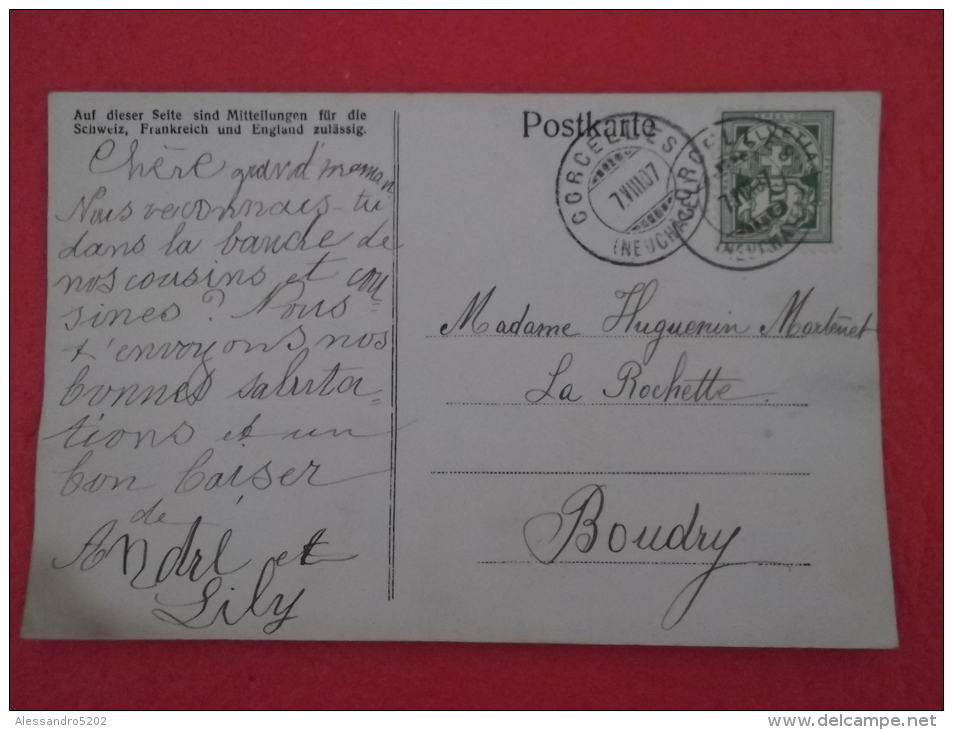 Auf dieser Seite sind Mitteilungen für die
Schweiz, Frankreich und England zulässig.
Chère grand'maman
Nous reconnais-tu
dans la bande de
nos cousins et cou=
sines? Nous
t'envoyons nos
bonnes saluta=
tions et un
bon baiser
de
André et
Lily
Postkarte
CORCELLES
7.VIII.07
(NEUCHATEL)
HELVETIA
5
Madame Huguenin Martenet
La Rochette
Boudry
Alessandro5202
www.delcampe.net